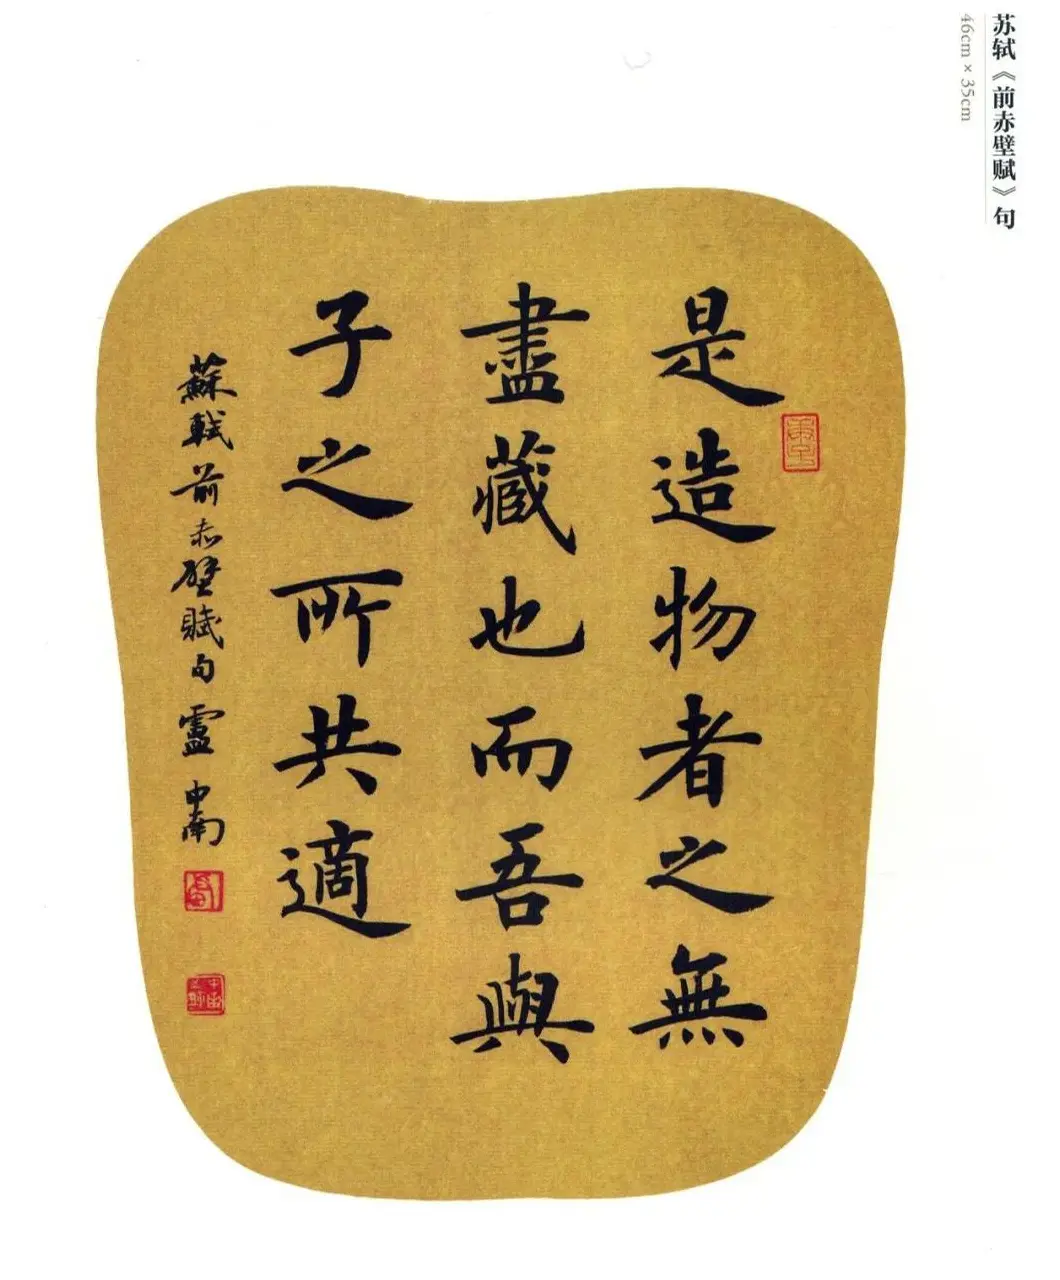 苏轼《前赤壁赋》句
46cm×35cm
是造物者之無
盡藏也而吾與
子之所共適
蘇軾前赤壁賦句盧中南